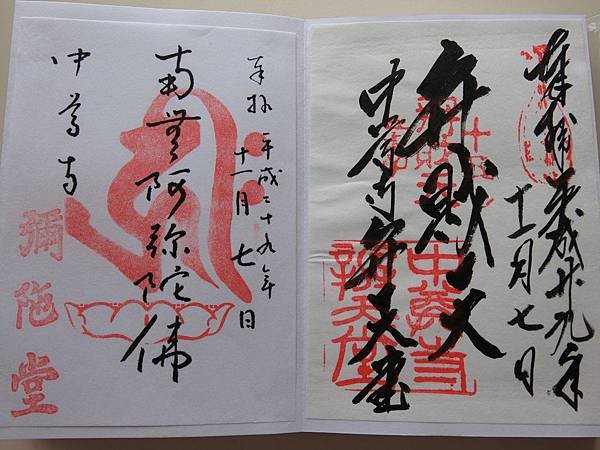 奉拝 平成廿九年
十一月七日
弁財天
中尊寺弁天堂
中尊寺
辨天堂
奉拝 平成二十九年
十一月七日
南無阿弥陀佛
中尊寺
彌陀堂